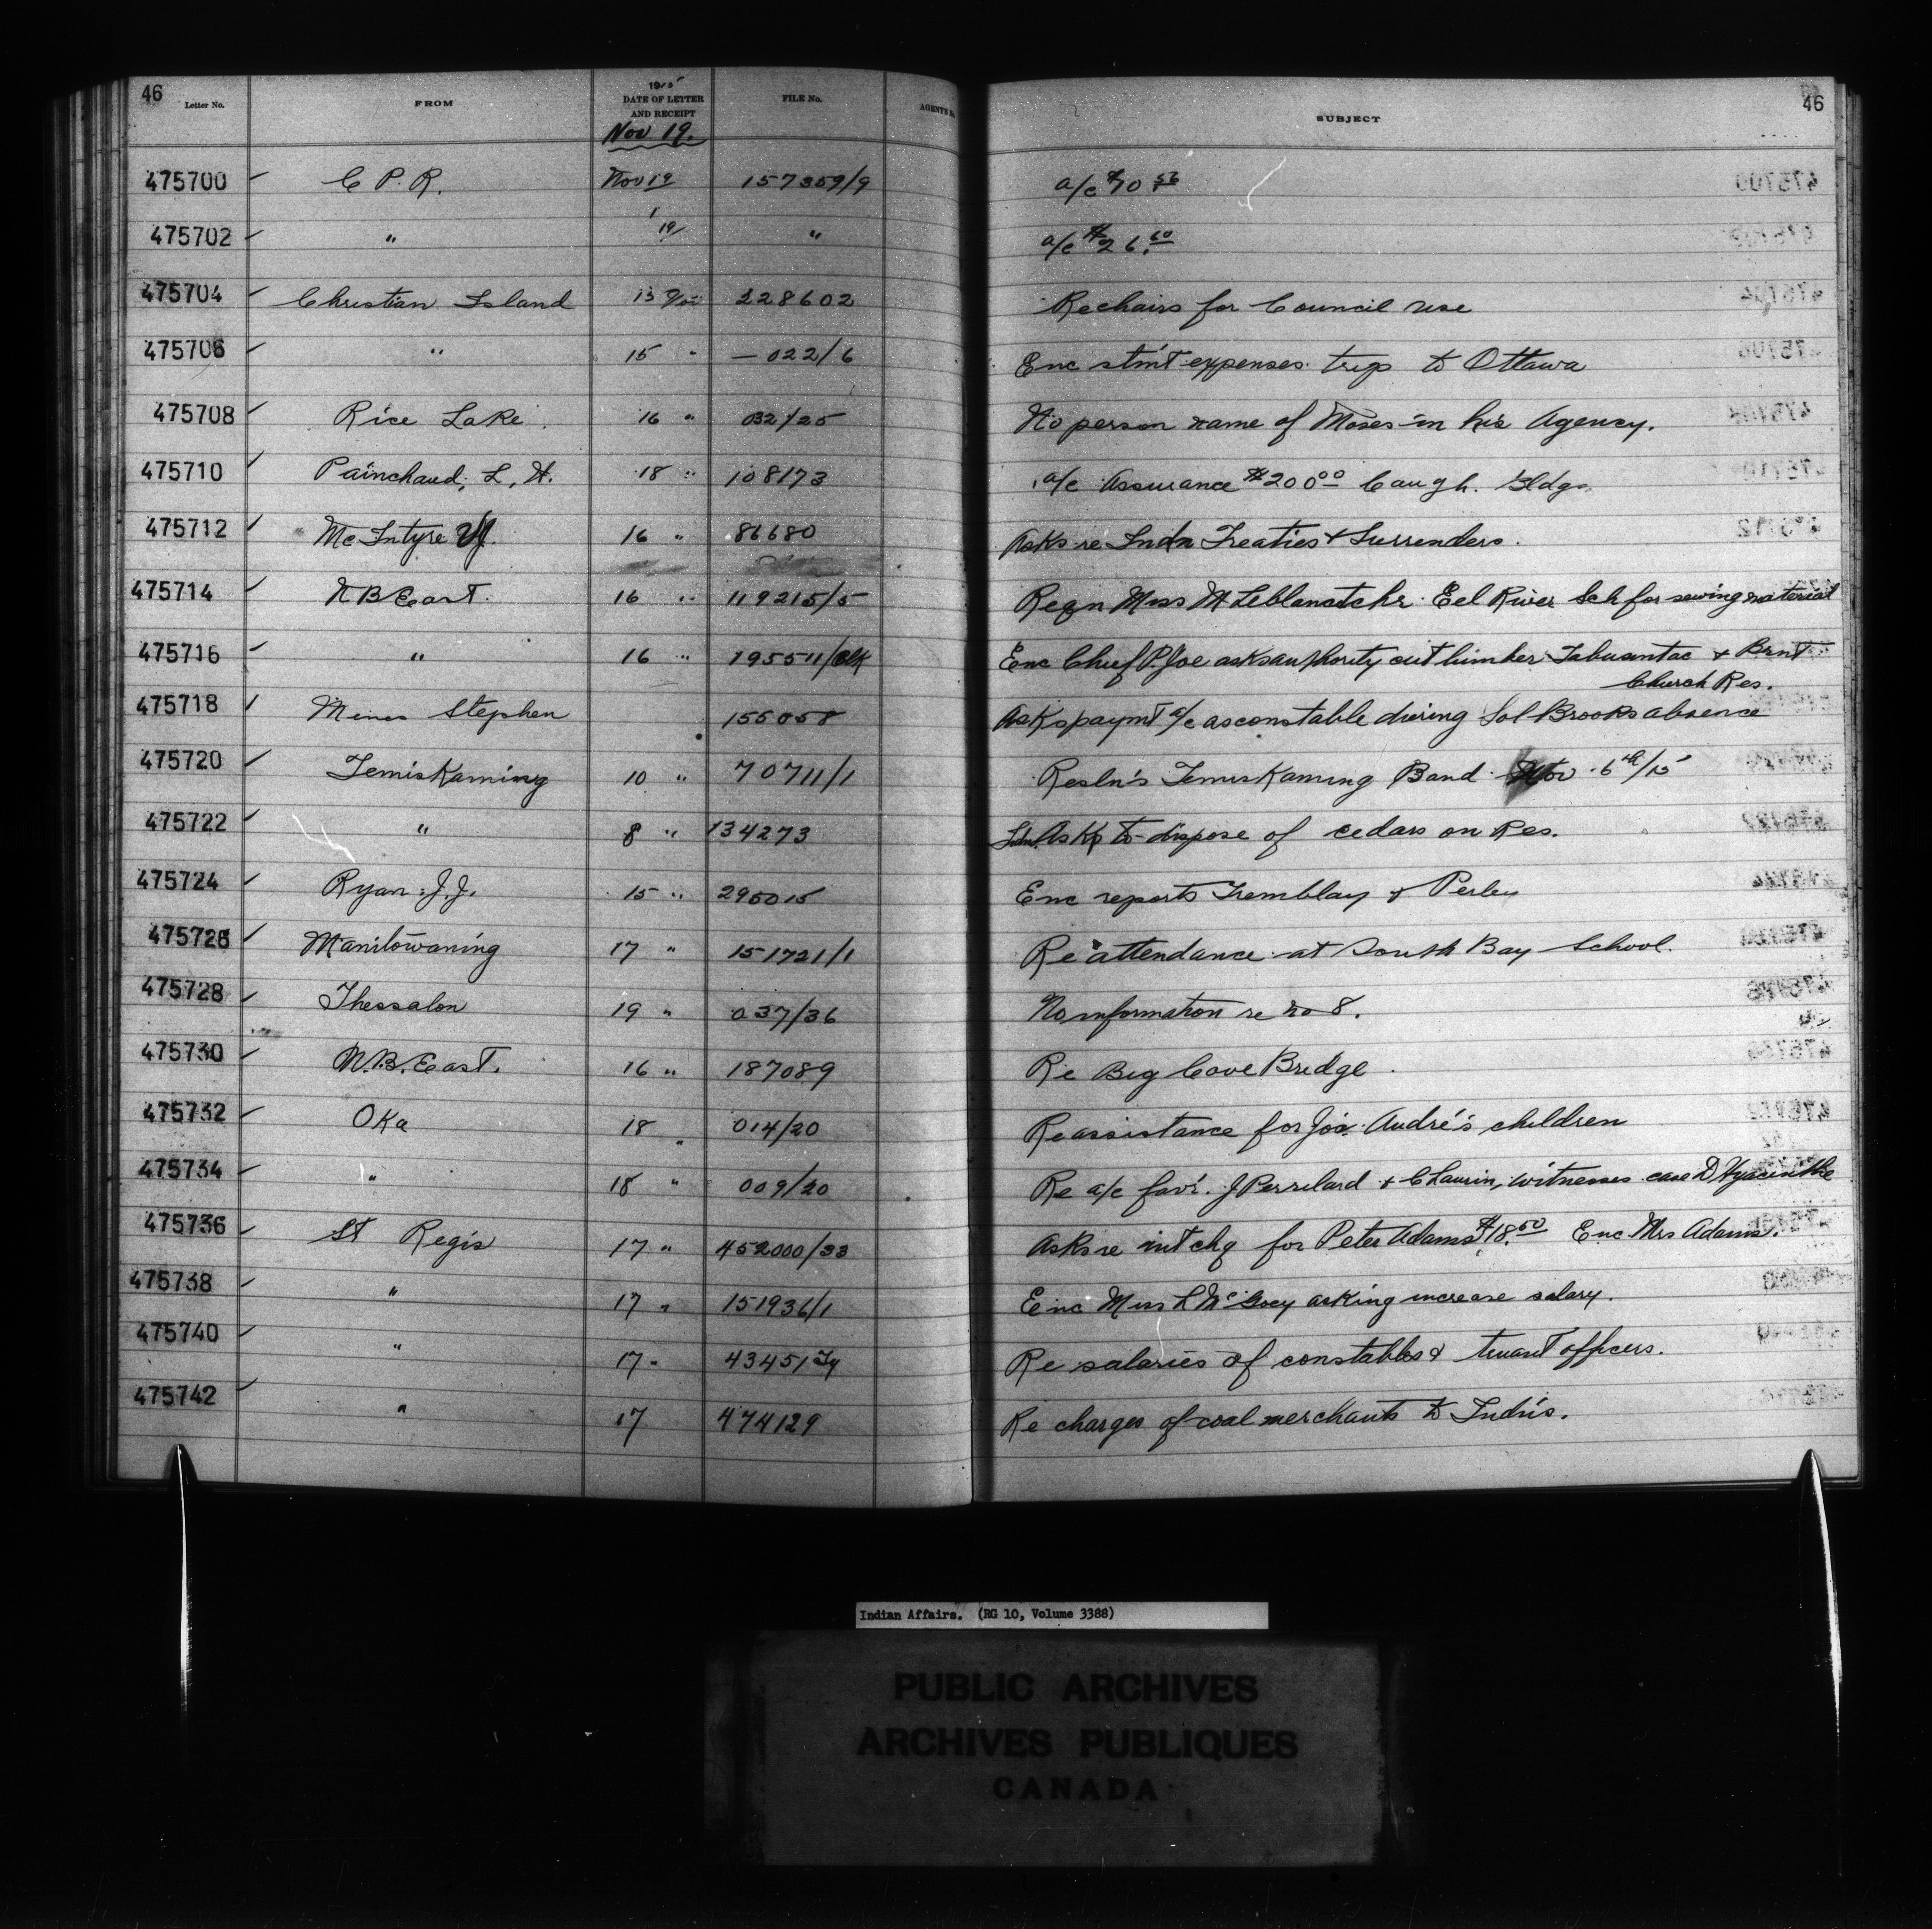 46
Letter No. FROM 1915 DATE OF LETTER AND RECEIPT FILE No. AGENTS SUBJECT 46
Nov 19.
475700 C P. R. Nov 19 157359/9 a/c $70.56
475702 " 19/ " a/c $26.60
475704 Christian Island 13 228602 Re chairs for Council use
475706 " 15 " — 022/6 Enc stmt expenses trip to Ottawa
475708 Rice Lake. 16 " 032/25 No person name of Moses in his Agency.
475710 Painchaud, L. H. 18 " 108173 a/c Assurance $200.00 Caugh. Bldgs
475712 McIntyre 16 " 86680 Asks re Indn Treaties & Surrenders.
475714 N B East. 16 " 119215/5 Reqn Miss M Leblanc tchr. Eel River Sch for sewing material
475716 " 16 " 195511/Blk Enc Chief P. Joe asks authority cut timber Tabusintac & Brnt Church Res.
475718 Mines Stephen 155058 Asks paymt a/c as constable during Sol Brooks absence
475720 Temiskaming 10 " 70711/1 Resln's Temiskaming Band Nov 6th/15
475722 " 8 " 134273 Indn. Asks to dispose of cedars on Res.
475724 Ryan J.J. 15 " 295015 Enc reports Tremblay & Perley
475726 Manitowaning 17 " 151721/1 Re attendance at South Bay School.
475728 Thessalon 19 " 037/36 No information re no 8.
475730 N.B. East. 16 " 187089 Re Big Cove Bridge.
475732 Oka 18 " 014/20 Re assistance for Jos. André's children
475734 " 18 " 009/20 Re a/c favr. J Perrilard & C Laurin, witnesses case D Hyacinthe
475736 St Regis 17 " 452000/33 Asks re int chq for Peter Adams $18.50 Enc. Mrs Adams.
475738 " 17 " 151936/1 Enc Miss L McGoey asking increase salary.
475740 " 17 " 43451 Re salaries of constables & truant officers.
475742 " 17 474129 Re charges of coal merchants to Indn's.
Indian Affairs. (RG 10, Volume 3388)
PUBLIC ARCHIVES
ARCHIVES PUBLIQUES
CANADA